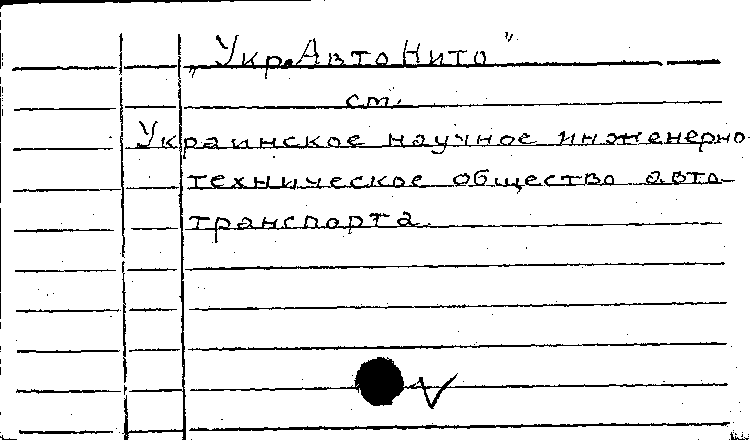 „Укр.АвтоНито"
см.
Украинское научное инженерно-
техническое общество авто-
транспорта.